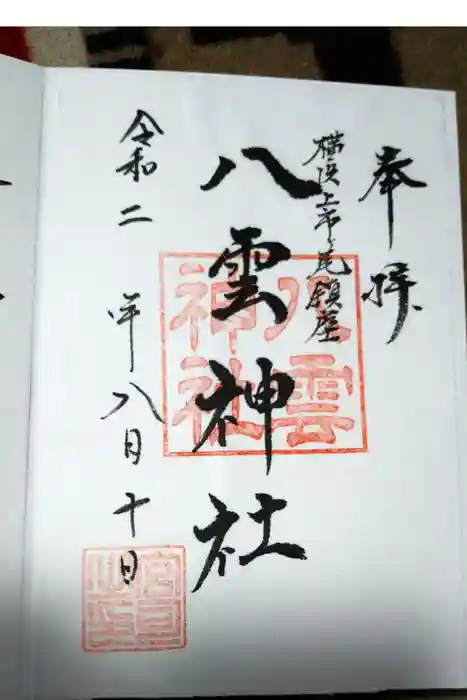 奉拝
横浜上市ヶ尾鎮座
八雲神社
八雲神社
令和二年八月十日